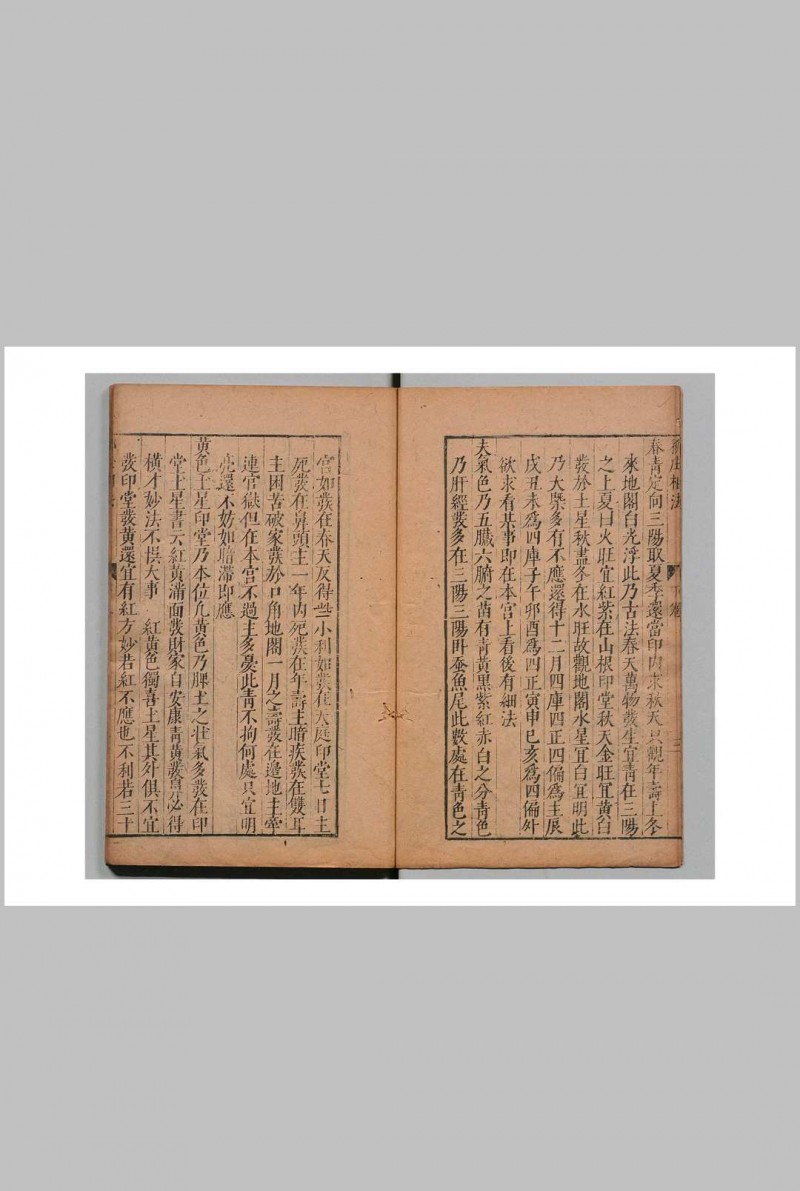 春靑定向三陽取夏季還當印內求秋天只觀年壽上冬
來地閣白光浮此乃古法春天萬物發生宜靑在三陽
之上夏曰火旺宜紅紫在山根印堂秋天金旺宜黃白
發於土星秋盡冬在水旺故觀地閣水星宜白宜明此
乃大槩多有不應還得十二月四庫四正四偏爲主辰
戌丑未爲四庫子午卯酉爲四正寅申巳亥爲四偏外
欲求看某事即在本宮上看後有細法
夫氣色乃五臟六腑之苗有靑黃黑紫紅赤白之分靑色
乃肝經發多在三陽三陰卧蚕魚尾此數處在靑色之
相法
下卷
宮如發在春天反得些小利如發在天庭印堂七日主
死發在鼻頭主一年內死發在年壽主暗疾發在雙耳
主困苦破家發於口角地閣一月之壽發在邉地主牽
連官獄但在本宮不過主多憂此靑不拘何處只宜明
亮還不妨如暗滯即應
黃色土星印堂乃本位凡黃色乃脾土之壮氣多發在印
堂土星書云紅黃滿面發財家自安康靑黃發鼻必得
橫才妙法不悞大事 紅黃色獨喜土星其外俱不宜
發印堂發黃還宜有紅方妙若紅不應也不利若三十